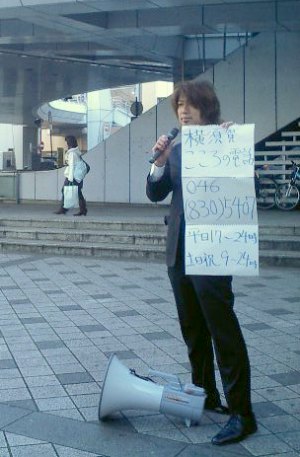 横須賀
こころの電話
046
(830)5407
平日17~24時
土日祝9~24時